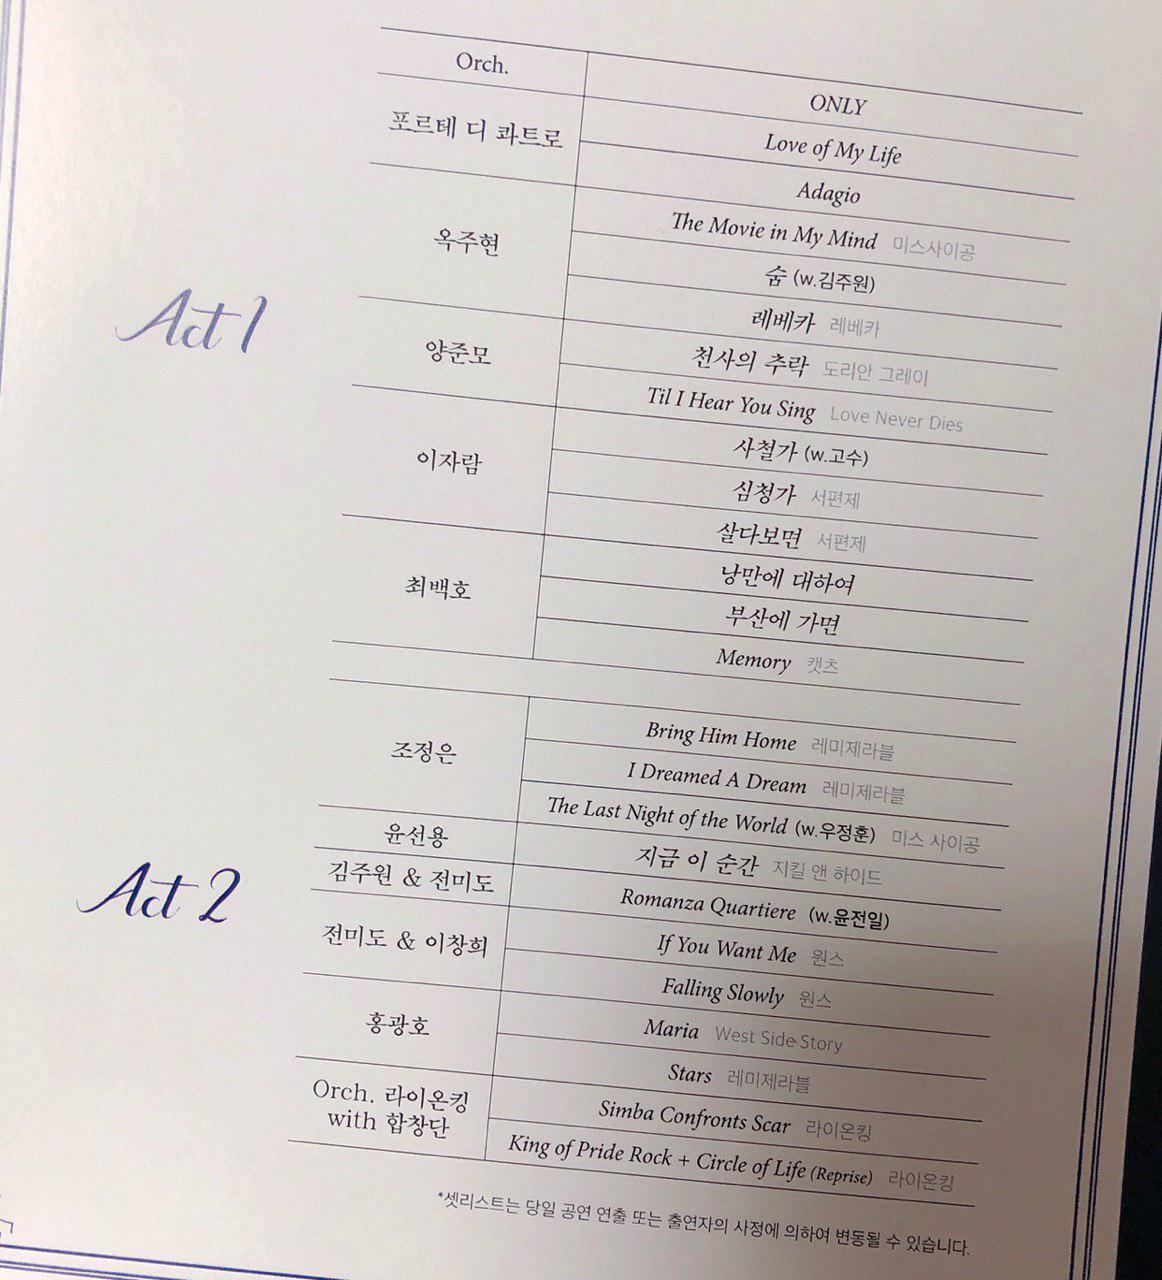 Act 1
Orch.
ONLY
포르테 디 콰트로
Love of My Life
Adagio
옥주현
The Movie in My Mind 미스사이공
숨 (w.김주원)
레베카 레베카
양준모
천사의 추락 도리안 그레이
Til I Hear You Sing Love Never Dies
이자람
사철가 (w.고수)
심청가 서편제
살다보면 서편제
최백호
낭만에 대하여
부산에 가면
Memory 캣츠
Act 2
조정은
Bring Him Home 레미제라블
I Dreamed A Dream 레미제라블
The Last Night of the World (w.우정훈) 미스 사이공
윤선용
지금 이 순간 지킬 앤 하이드
김주원 & 전미도
Romanza Quartiere (w.윤전일)
전미도 & 이창희
If You Want Me 원스
Falling Slowly 원스
홍광호
Maria West Side Story
Stars 레미제라블
Orch. 라이온킹
with 합창단
Simba Confronts Scar 라이온킹
King of Pride Rock + Circle of Life (Reprise) 라이온킹
*셋리스트는 당일 공연 연출 또는 출연자의 사정에 의하여 변동될 수 있습니다.